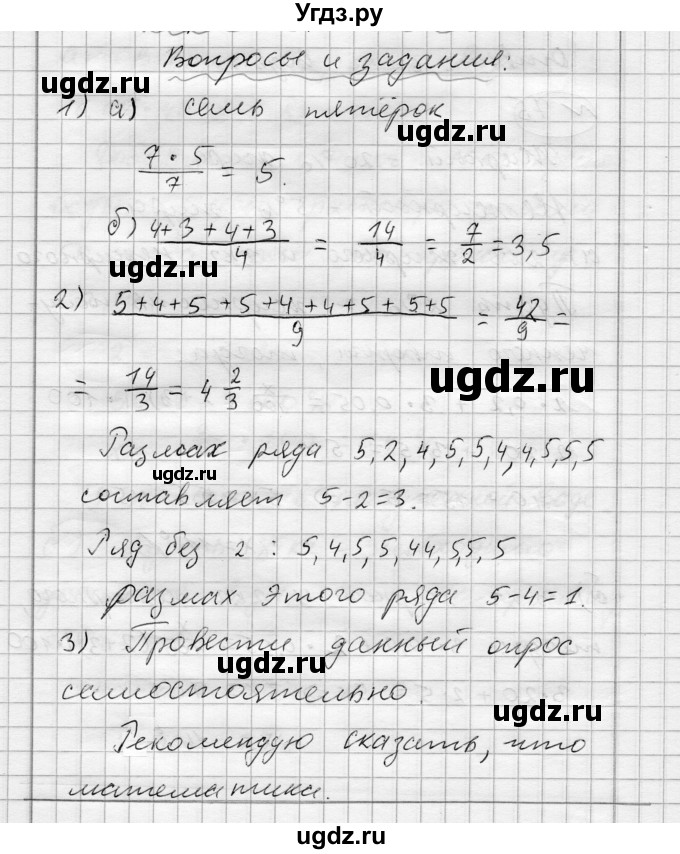 Угdз.ру
Вопросы и задания:
ugdz.ru
1) а) семь пятёрок
ugdz.ru
7 · 5 / 7 = 5.
ugdz.ru
б) 4+3+4+3 / 4 = 14/4 = 7/2 = 3,5
2) 5+4+5+5+4+4+5+5+5 / 9 = 42/9 =
ugdz.ru
= 14/3 = 4 2/3
Размах ряда 5,2,4,5,5,4,4,5,5,5
ugdz.ru
составляет 5-2=3.
ugdz.ru
Ряд без 2 : 5,4,5,5,44,5,5,5
размах этого ряда 5-4=1.
3) Провести данный опрос
ugdz.ru
самостоятельно.
ugdz.ru
Рекомендую сказать, что
математика.
ugdz.ru
ugdz.ru